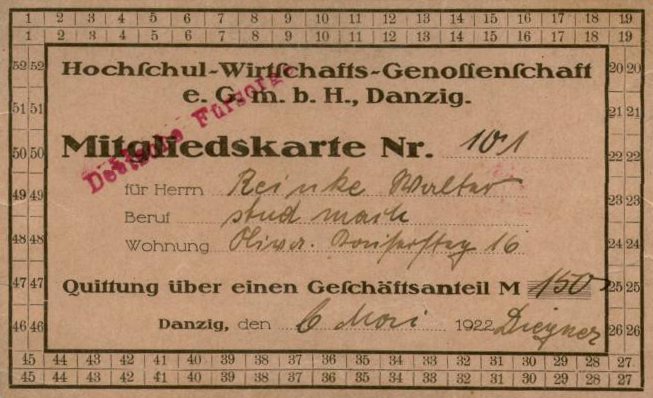 1 2 3 4 5 6 7 8 9 10 11 12 13 14 15 16 17 18 19
1 2 3 4 5 6 7 8 9 10 11 12 13 14 15 16 17 18 19
52 52 Hochſchul-Wirtſchafts-Genoſſenſchaft 20 20
51 51 e. G. m. b. H., Danzig. 21 21
Deutsche Fürsorge
50 50 Mitgliedskarte Nr. 101 22 22
49 49 für Herrn Reinke Walter 23 23
Beruf stud mach
48 48 Wohnung Oliva. 16 24 24
47 47 Quittung über einen Geſchäftsanteil M 150 25 25
46 46 Danzig, den 6 Mai 1922 26 26
45 44 43 42 41 40 39 38 37 36 35 34 33 32 31 30 29 28 27
45 44 43 42 41 40 39 38 37 36 35 34 33 32 31 30 29 28 27